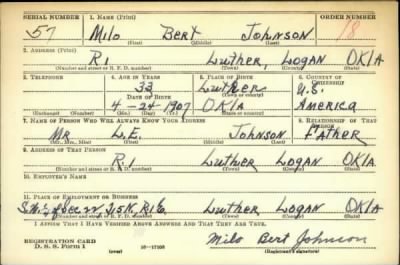 SERIAL NUMBER 1. NAME (Print) ORDER NUMBER
57 Milo Bert Johnson 18
(First) (Middle) (Last)
2. ADDRESS (Print)
R1 Luther, Logan Okla
(Number and street or R. F. D. number) (Town) (County) (State)
3. TELEPHONE 4. AGE IN YEARS 5. PLACE OF BIRTH 6. COUNTRY OF CITIZENSHIP
33 Luther U.S.
DATE OF BIRTH (Town or county)
4-24-1907 Okla America
(Exchange) (Number) (Mo.) (Day) (Yr.) (State or country)
7. NAME OF PERSON WHO WILL ALWAYS KNOW YOUR ADDRESS 8. RELATIONSHIP OF THAT PERSON
Mr L.E. Johnson Father
(Mr., Mrs., Miss) (First) (Middle) (Last)
9. ADDRESS OF THAT PERSON
R.1 Luther Logan Okla
(Number and street or R. F. D. number) (Town) (County) (State)
10. EMPLOYER'S NAME
11. PLACE OF EMPLOYMENT OR BUSINESS
Sec 22 T15N. R1E. Luther Logan Okla
(Number and street or R. F. D. number) (Town) (County) (State)
I AFFIRM THAT I HAVE VERIFIED ABOVE ANSWERS AND THAT THEY ARE TRUE.
REGISTRATION CARD
D. S. S. Form 1 (over) 16—17105 Milo Bert Johnson
(Registrant's signature)